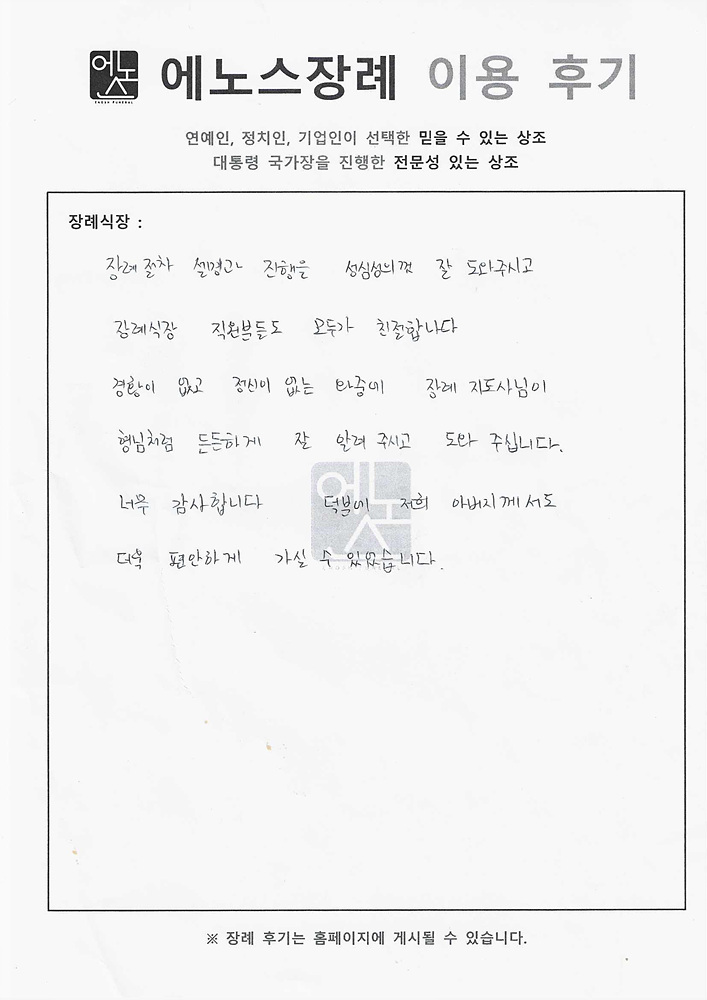 에노스
ENOSH FUNERAL
에노스장례 이용 후기
연예인, 정치인, 기업인이 선택한 믿을 수 있는 상조
대통령 국가장을 진행한 전문성 있는 상조
장례식장 :
장례 절차 설명과 진행을 성심성의껏 잘 도와주시고
장례식장 직원분들도 모두가 친절합니다
경황이 없고 정신이 없는 와중에 장례 지도사님이
형님처럼 든든하게 잘 알려 주시고 도와 주십니다.
너무 감사합니다 덕분에 저희 아버지께서도
더욱 편안하게 가실 수 있었습니다.
※ 장례 후기는 홈페이지에 게시될 수 있습니다.